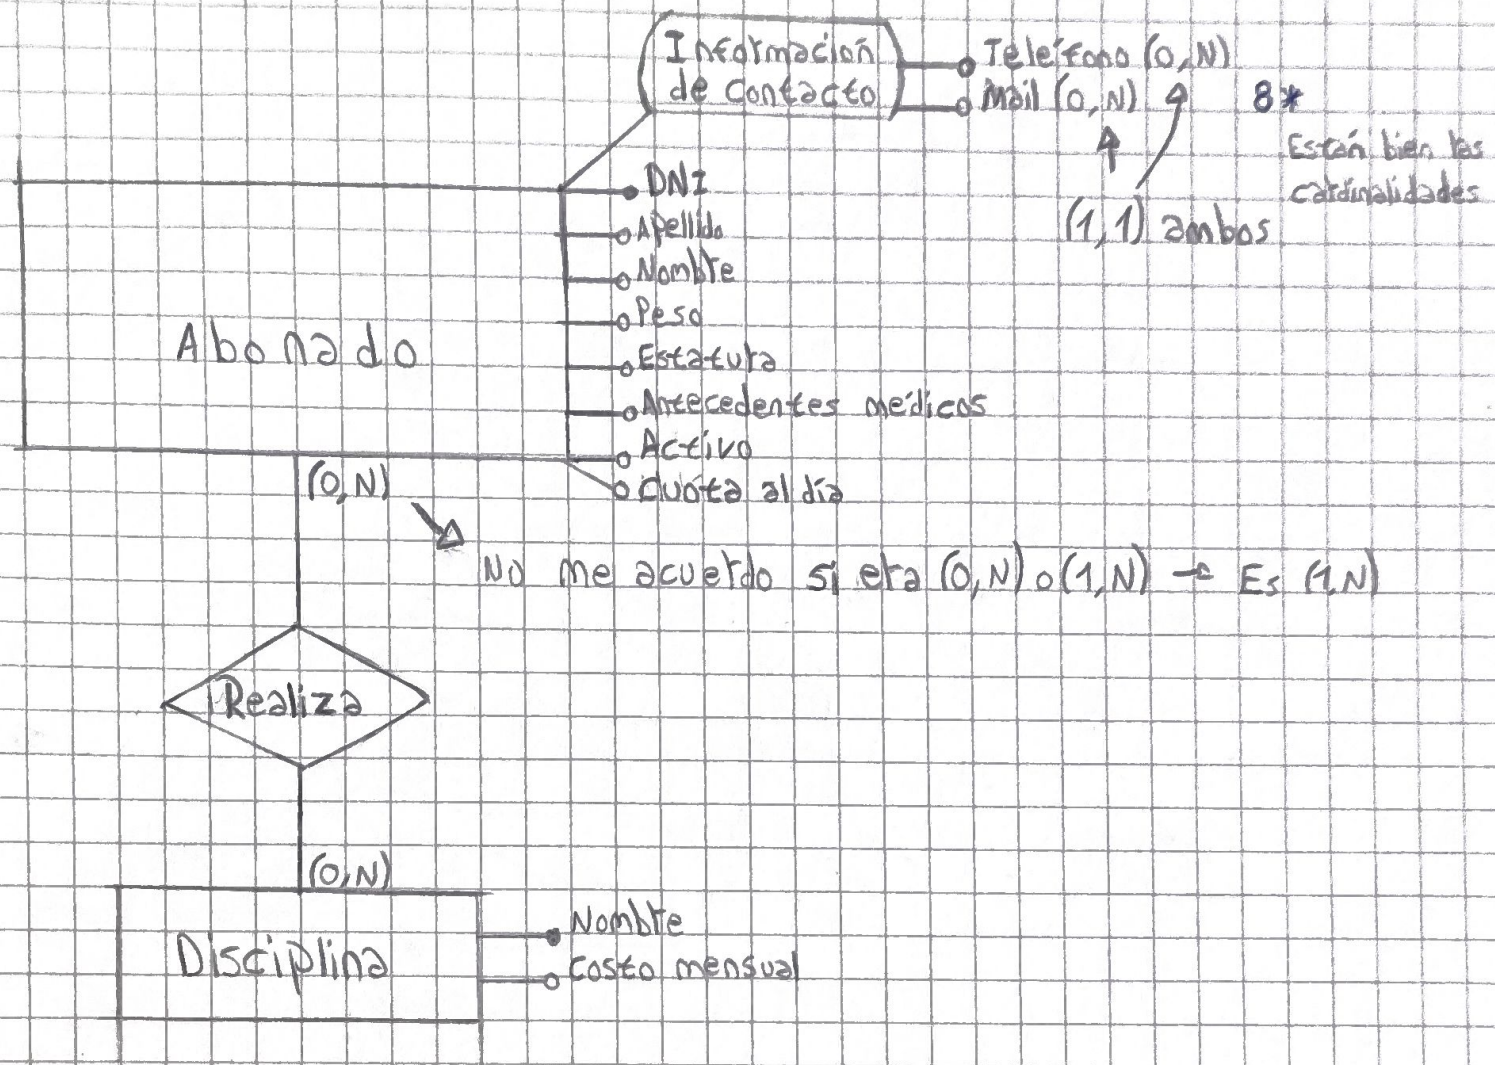 Información
de contacto
Teléfono (0,N)
Mail (0,N)
8*
Están bien las
cardinalidades
(1,1) ambos
DNI
Apellido
Nombre
Peso
Estatura
Antecedentes médicos
Activo
Cuota al día
Abonado
(0,N)
No me acuerdo si era (0,N) o (1,N) → Es (1,N)
Realiza
(0,N)
Disciplina
Nombre
Costo mensual